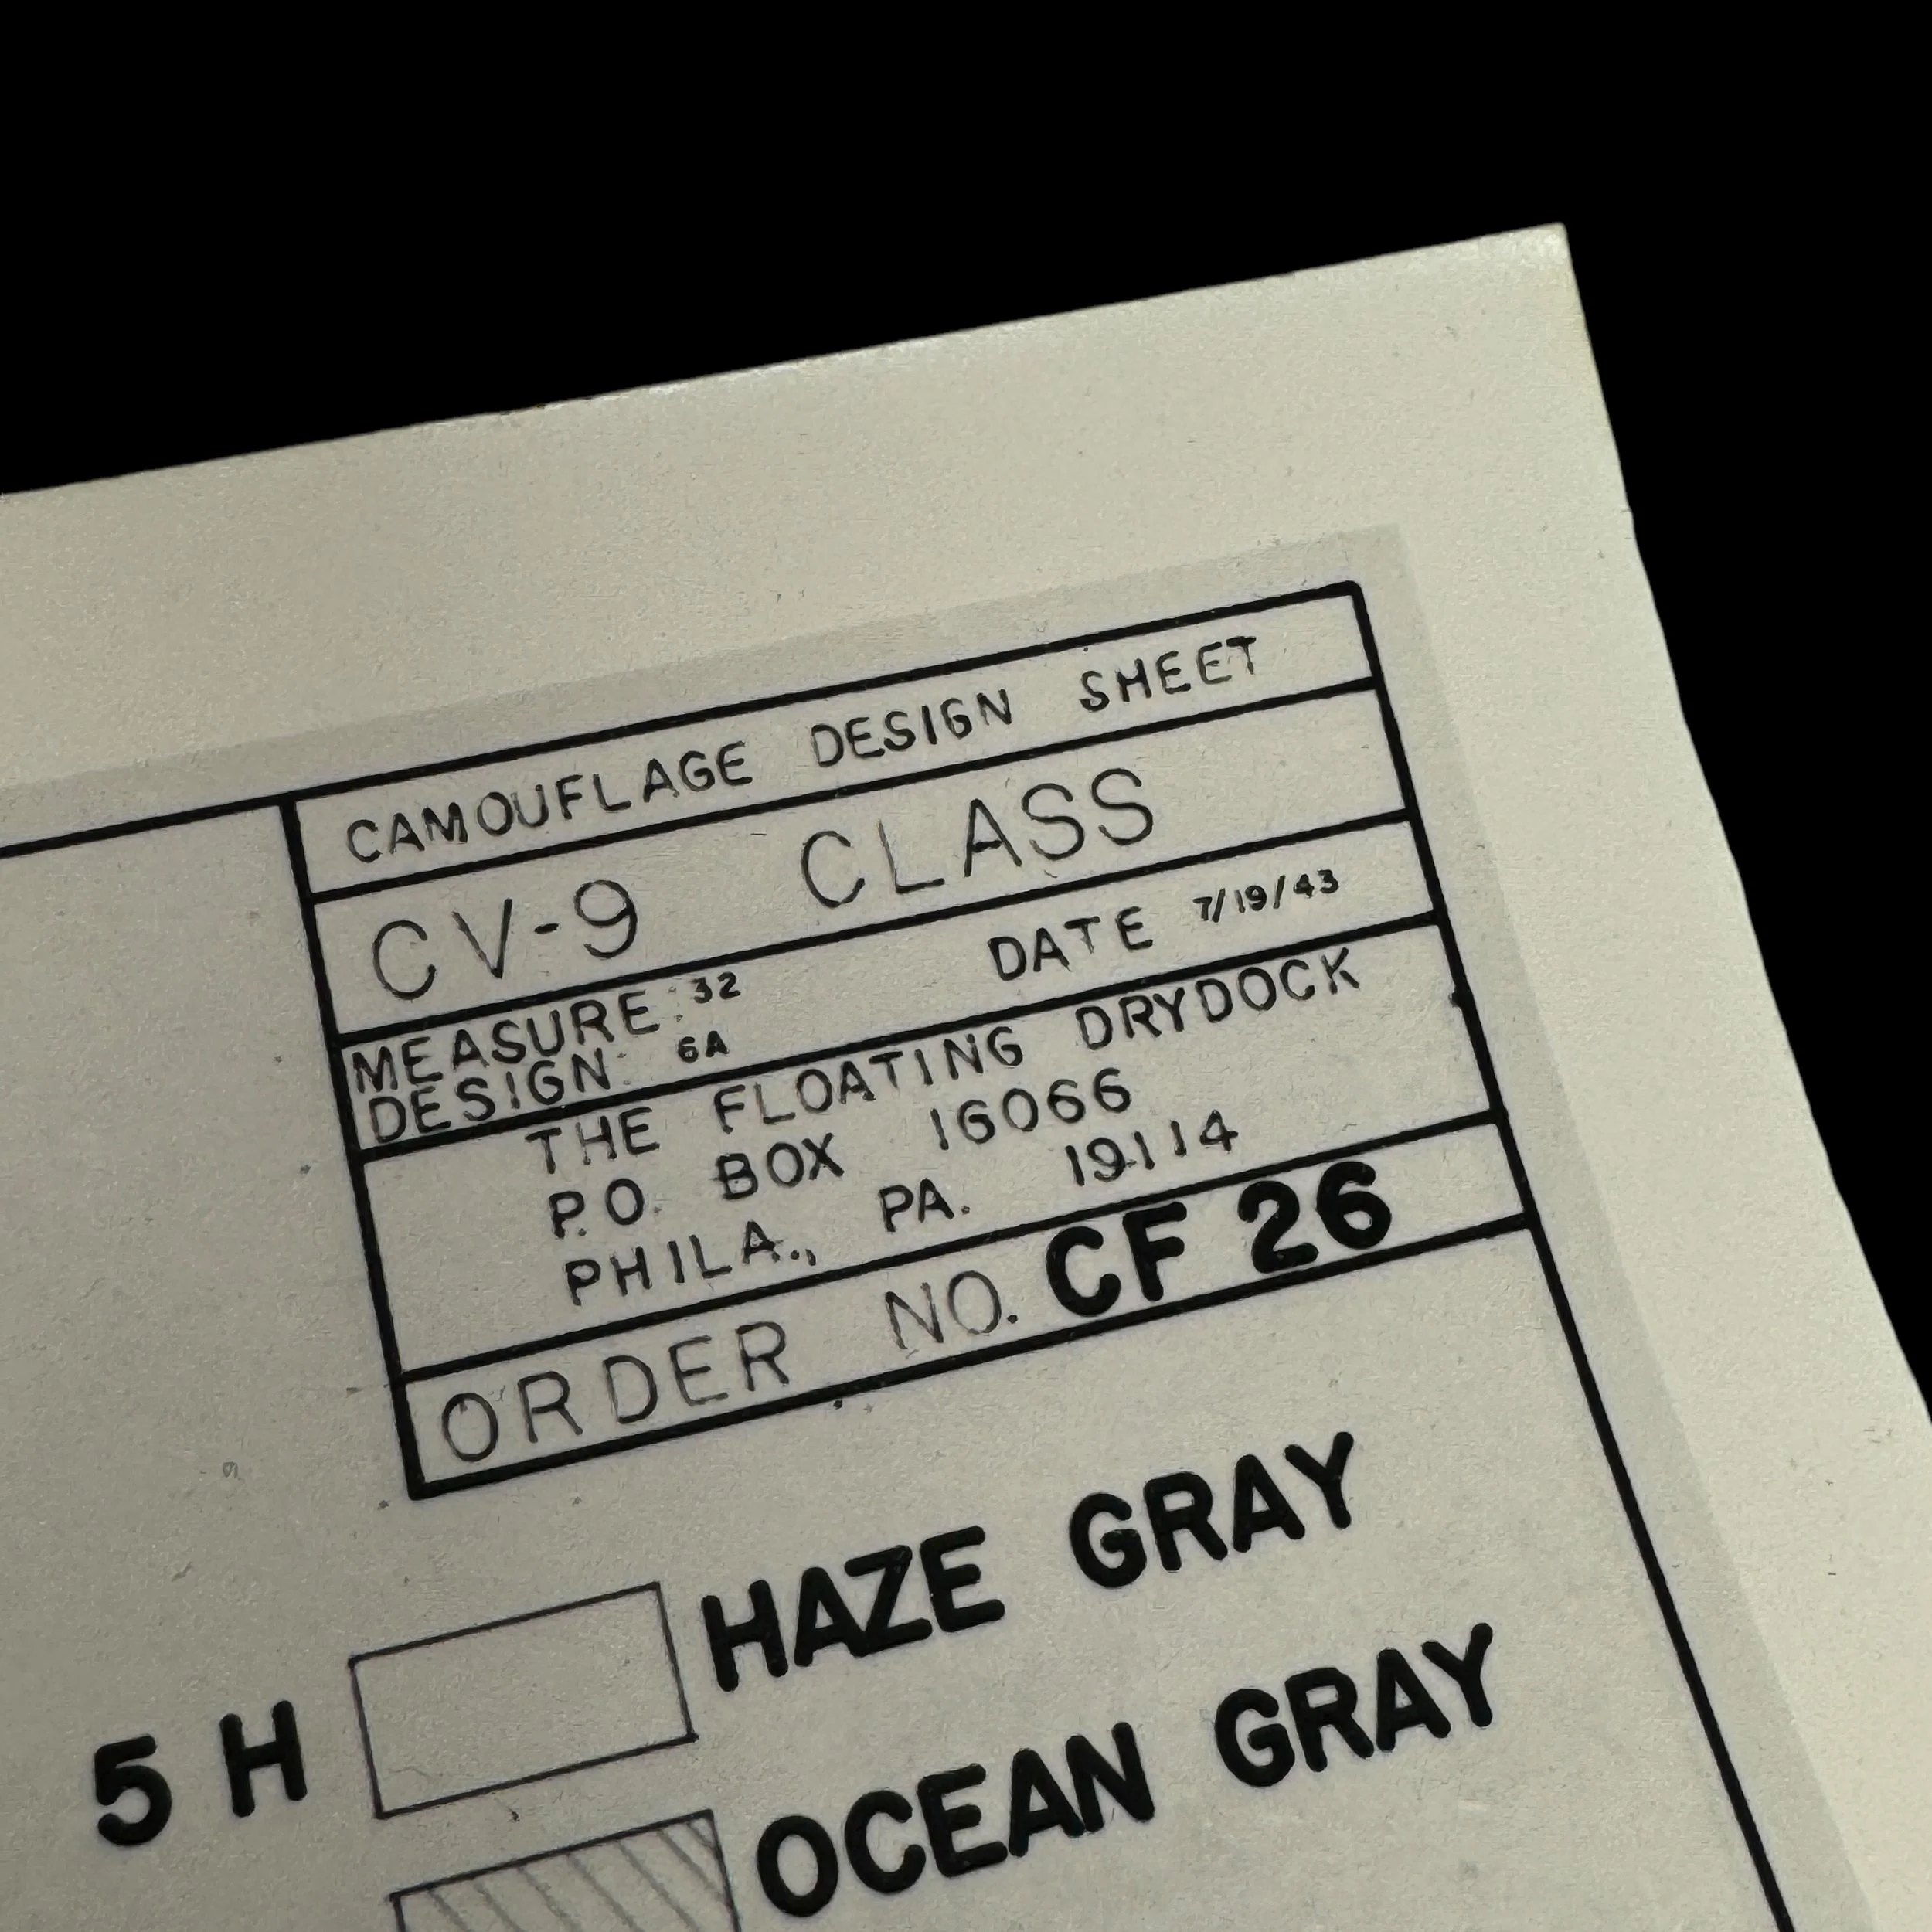 CAMOUFLAGE DESIGN SHEET
CV-9 CLASS
MEASURE: 32 DATE 7/19/43
DESIGN: 6A
THE FLOATING DRYDOCK
P.O. BOX 16066
PHILA., PA. 19114
ORDER NO. CF 26
5 H HAZE GRAY
OCEAN GRAY